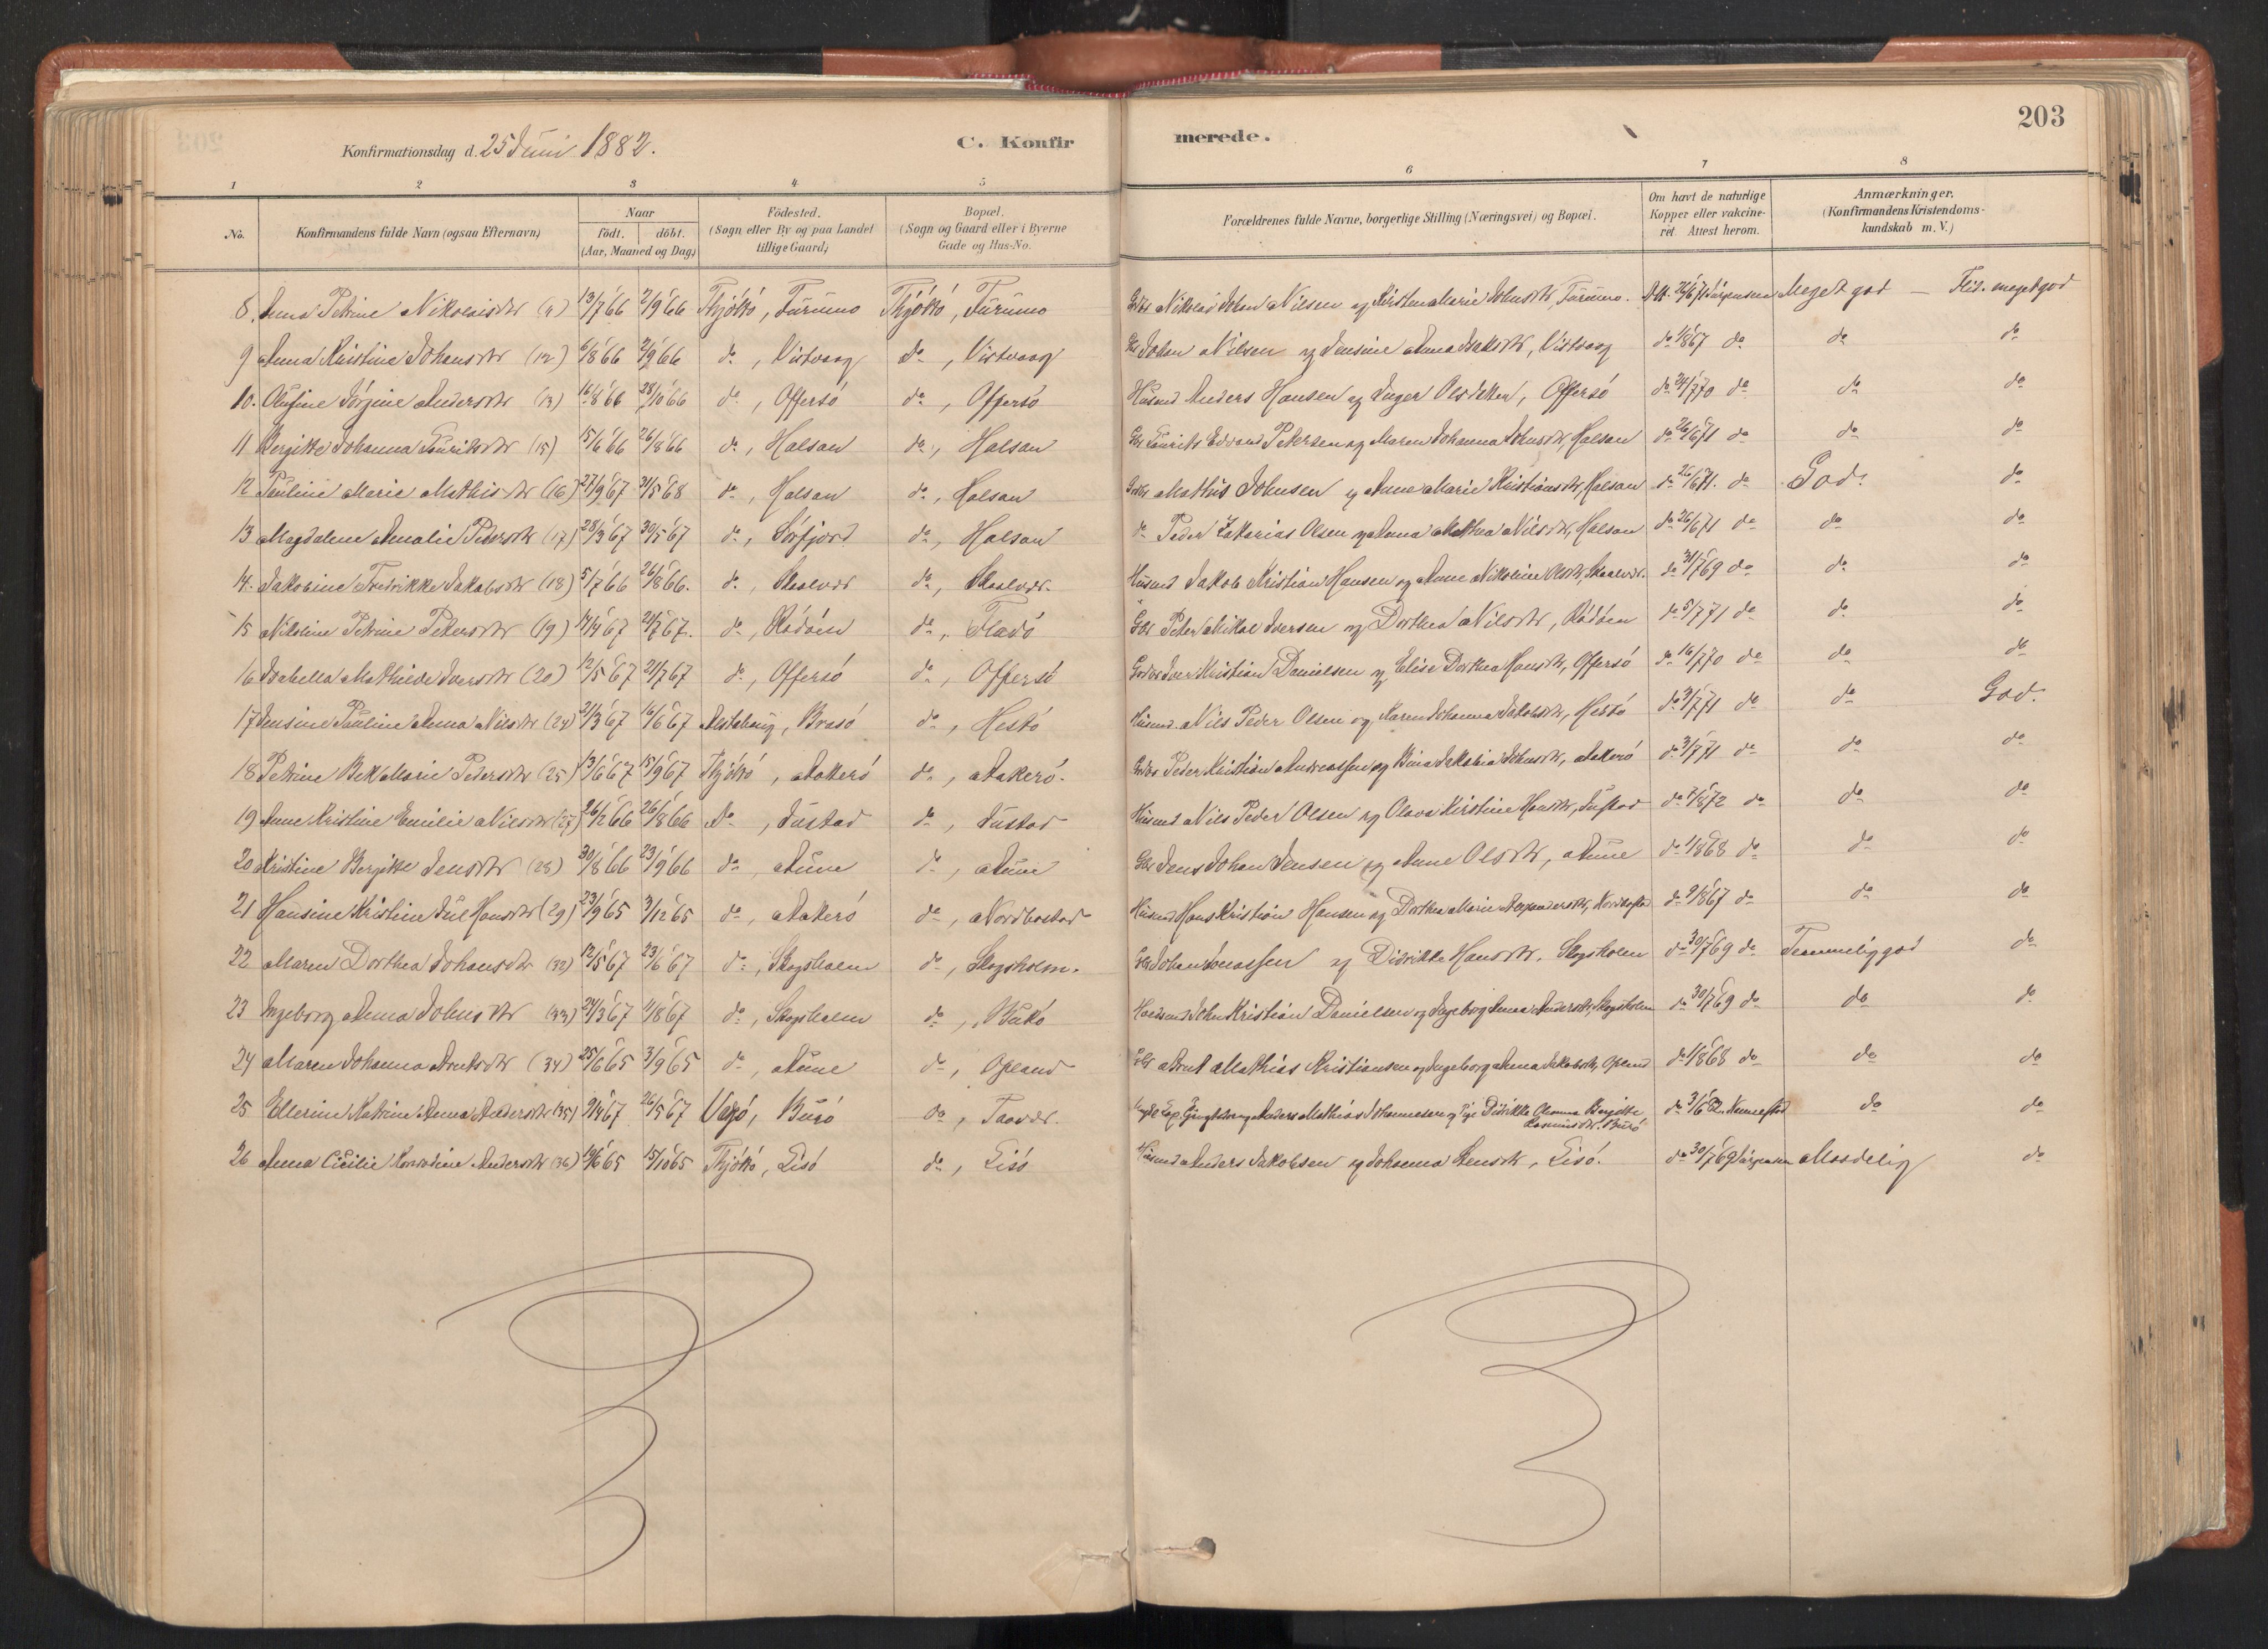 203
Konfirmationsdag d. 25 Juni 1882.
C. Konfirmerede.
1 2 3 4 5 6 7 8
No.
Konfirmandens fulde Navn (ogsaa Efternavn)
Naar
födt. döbt.
(Aar, Maaned og Dag)
Födested.
(Sogn eller By og paa Landet
tillige Gaard)
Bopæl.
(Sogn og Gaard eller i Byerne
Gade og Hus-No.
Forældrenes fulde Navne, borgerlige Stilling (Næringsvei) og Bopæl.
Om havt de naturlige
Kopper eller vakcine-
ret. Attest herom.
Anmærkninger.
(Konfirmandens Kristendoms-
kundskab m. V.)
8. Anna Petrine Nikolaisdtr 13/7 66 2/9 66 Thjötö, Furuno Thjötö, Furuno Nikolai Johan Nilsen og Kristen Marie Johnsdtr, Furuno. 26/6 71 Jörgensen Meget god — Flid. meget god
9 Anna Kristine Johansdtr (12) 6/8 66 2/9 66 do, Vistvaag do, Vistvaag Johan Nilsen og Jensine Anna Isaksdtr, Vistvaag do 1/8 67 do do do
10. Olufine Jörgine Andersdtr (13) 16/8 66 28/10 66 do, Offersö do, Offersö Husmd Anders Hansen og Inger Olsdatter, Offersö do 24/7 70 do do do
11 Bergitte Johanna Lauritsdtr (15) 15/6 66 26/8 66 do, Halsan do, Halsan Laurits Edvard Petersen og Maren Johanna Johnsdtr, Halsan do 26/6 71 do do do
12 Pauline Marie Mathisdtr (16) 27/9 67 21/5 68 do, Halsan do, Halsan Mathis Johnsen og Anne Marie Kristiansdtr, Halsan do 26/6 71. do God. do
13 Magdalena Amalie Pedersdtr (17) 28/3 67 30/5 67 do, Sörfjord do, Halsan do Peder Zakarias Olsen og Anna Mathea Nilsdtr, Halsan do 26/6 71 do do do
14. Jakobine Fredrikke Jakobsdtr (18) 5/7 66 26/8 66. do, Skalvær do, Skaalvær. Husmd Jakob Kristian Hansen og Anne Nikoline Olsdtr, Skaalvær. do 31/7 69 do do do
15 Nikoline Petrine Petersdtr (19) 14/4 67 21/7 67. do, Rödöen do, Fladö Peter Mikal Iversen og Dorthea Nilsdtr, Rödöen do 5/7 71 do do do
16 Isabella Mathilde Iversdtr (20) 12/5 67 21/7 67 do, Offersö do, Offersö Iver Kristian Danielsen og Elise Dorthea Hansdtr, Offersö do 16/7 70 do do do
17 Jensine Pauline Anna Nilsdtr (24) 21/3 67 16/6 67 Alstahaug, Brasö do, Hestö Husmd Nils Peder Olsen og Maren Johanna Jakobsdtr, Hestö do 3/7 71 do do God.
18 Petrine Marie Pedersdtr (25) 13/6 67 15/9 67 Thjötö, Aakerö do, Aakerö. Peder Kristian Andreassen og Jakobia Johnsdtr, Aakerö do 3/7 71 do do do
19 Anne Kristine Emilie Nilsdtr (27) 26/2 66 26/8 66 Do, Tustad do, Tustad Husmd Nils Peder Olsen og Olava Kirstine Hansdtr, Tustad do 7/8 72 do do do
20 Kristine Bergitte Jensdtr (28) 30/8 66 23/9 66 do, Aune do, Aune Jens Johan Jensen og Anne Olsdtr, Aune do 1/8 68 do do do
21 Hansine Kristine Hansdtr (29) 23/9 65 3/12 65 do, Aakerö do, Nordbostad Husmd Hans Kristian Hansen og Dorthea Marie do 9/8 67 do do do
22 Maren Dorthea Johansdtr (32) 12/5 67 23/6 67 do, Skogsholm do, Skogsholm. Johan Jonassen og Didrikke Hansdtr. Skogsholm do 30/7 69 do Temmelig god do
23 Ingeborg Anna Johnsdtr (33) 24/3 67 11/8 67 do, Skogsholm do, Husmd John Kristian Danielsen og Ingeborg Anna Andersdtr, Skogsholm do 30/7 69 do do do
24 Maren Johanna Arntsdtr (34) 25/6 65 3/9 65 do, Aune do, Opland Arnt Mathias Kristiansen og Ingeborg Anna Jakobsdtr, Opland do 1/8 68 do do do
25 Ellerine Katrine Anna Andersdtr (35) 9/4 67 26/5 67 Vegö, Burö do, Anders Mathias Johannesen og Pige Didrikke Bergitte
Rasmusdtr. Burö do 3/6 82 do do
26 Anna Cicilie Konradine Andersdtr (36) 19/6 65 15/10 65 Thjötö, Lisö do, Lisö Husmd Anders Jakobsen og Johanna Jensdtr, Lisö. do 30/7 69 Jörgensen Maadelig do